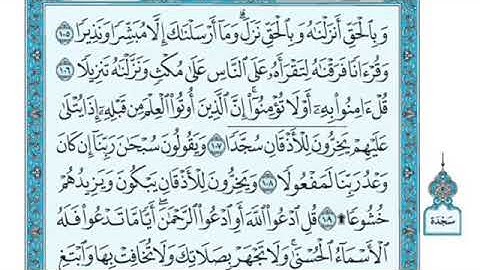 وَبِالْحَقِّ أَنزَلْنَٰهُ وَبِالْحَقِّ نَزَلَ ۗ وَمَآ أَرْسَلْنَٰكَ إِلَّا مُبَشِّرًا وَنَذِيرًا ١٠٥
وَقُرْءَانًا فَرَقْنَٰهُ لِتَقْرَأَهُۥ عَلَى النَّاسِ عَلَىٰ مُكْثٍ وَنَزَّلْنَٰهُ تَنزِيلًا ١٠٦
قُلْ ءَامِنُوا۟ بِهِۦٓ أَوْ لَا تُؤْمِنُوٓا۟ ۚ إِنَّ الَّذِينَ أُوتُوا۟ الْعِلْمَ مِن قَبْلِهِۦٓ إِذَا يُتْلَىٰ
عَلَيْهِمْ يَخِرُّونَ لِلْأَذْقَانِ سُجَّدًا ١٠٧ وَيَقُولُونَ سُبْحَٰنَ رَبِّنَآ إِن كَانَ
وَعْدُ رَبِّنَا لَمَفْعُولًا ١٠٨ وَيَخِرُّونَ لِلْأَذْقَانِ يَبْكُونَ وَيَزِيدُهُمْ
خُشُوعًا ۩ ١٠٩ قُلِ ادْعُوا۟ اللَّهَ أَوِ ادْعُوا۟ الرَّحْمَٰنَ ۖ أَيًّا مَّا تَدْعُوا۟ فَلَهُ
الْأَسْمَآءُ الْحُسْنَىٰ ۚ وَلَا تَجْهَرْ بِصَلَاتِكَ وَلَا تُخَافِتْ بِهَا وَابْتَغِ
سَجْدَة